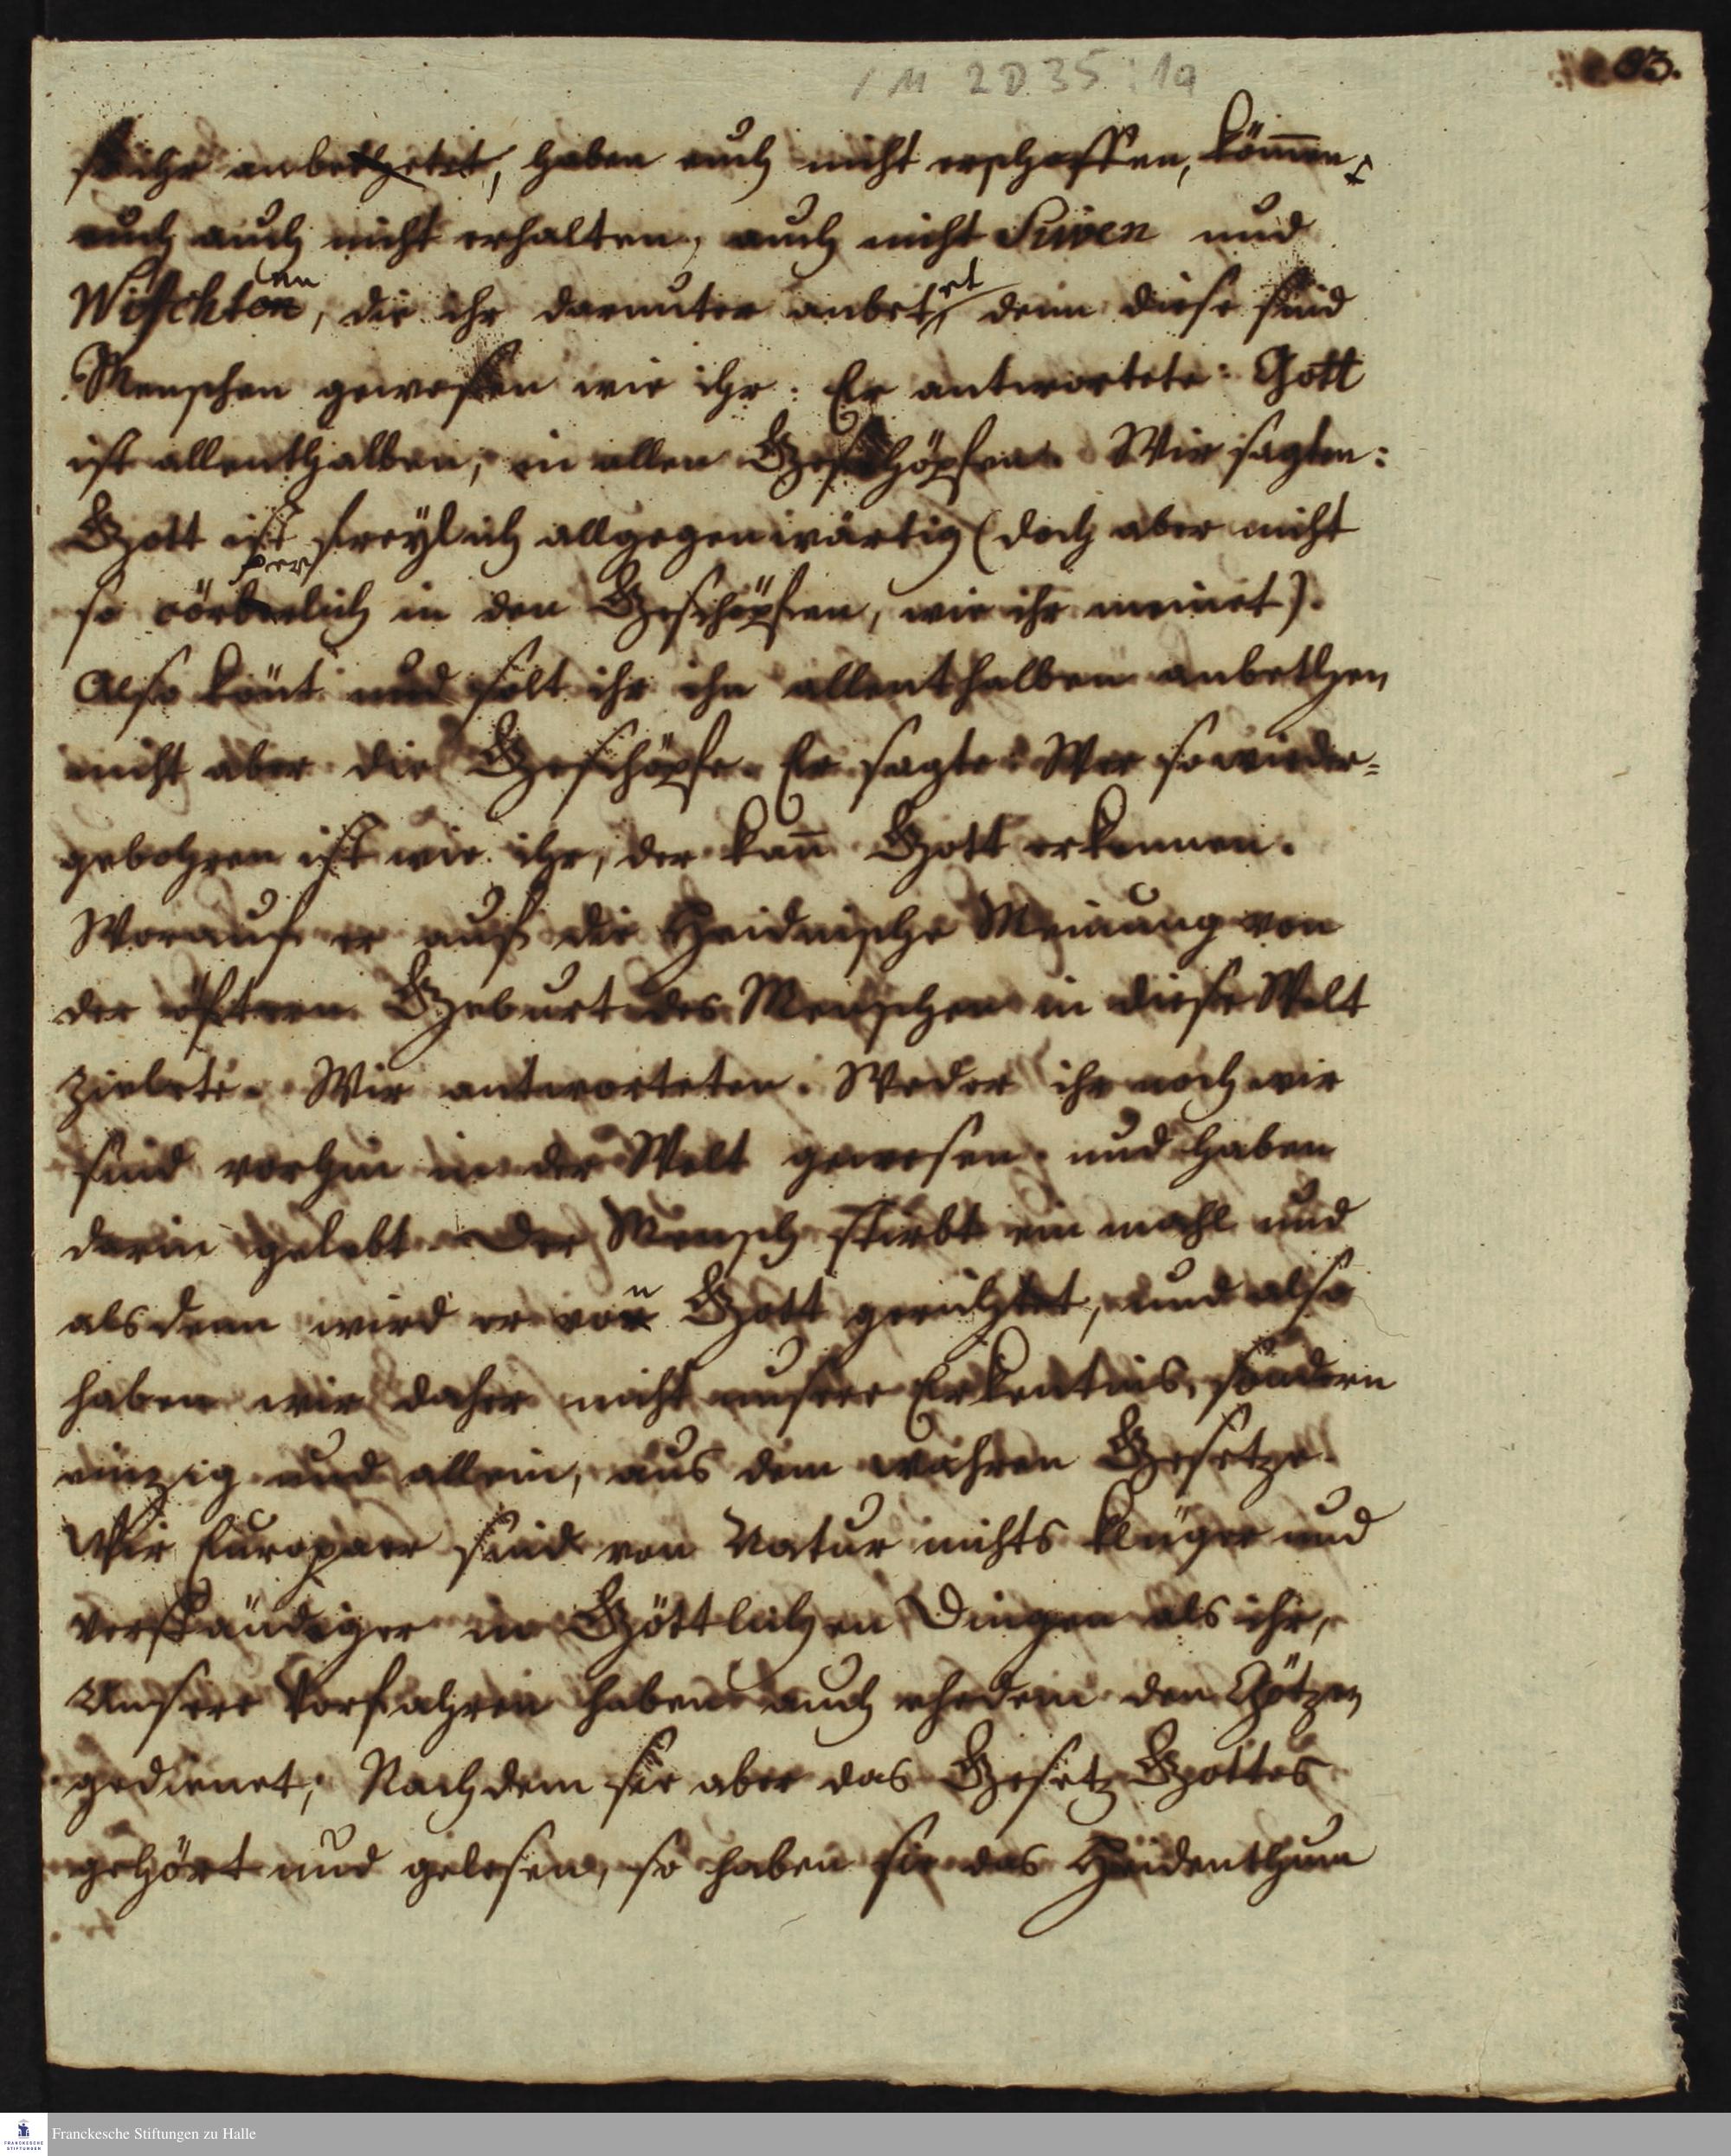 1 M 2 D 35 : 19
83.
so ihr anbethetet, haben euch nicht erschaffen, können
euch auch nicht erhalten, auch nicht Siwen und
Wischtnen, die ihr darunter anbetet, denn diese sind
Menschen gewesen wie ihr. Er antwortete: Gott
ist allenthalben, in allen Geschöpfen. Wir sagten:
Gott ist freylich allgegenwärtig (doch aber nicht
so cörperlich in den Geschöpfen, wie ihr meinet).
Also könt und solt ihr ihn allenthalben anbethen
nicht aber die Geschöpfe. Er sagte: Wer so wieder=
gebohren ist wie ihr, der kan̄ Gott erkennen.
Worauf er auf die Heidnische Meinung von
der öftern Geburt des Menschen in diese Welt
zielete. Wir antworteten. Weder ihr noch wir
sind vorhin in der Welt gewesen und haben
darin gelebt. Der Mensch stirbt ein mahl und
alsdenn wird er von Gott gerichtet, und also
haben wir daher nicht unsere Erkentnis, sondern
einzig und allein, aus dem wahren Gesetze.
Wir Europaer sind von Natur nichts klüger und
verständiger in Göttlichen Dingen als ihr,
Unsere Vorfahren haben auch ehedem den Götzen
gedienet; Nachdem sie aber das Gesetz Gottes
gehört und gelesen, so haben sie das Heidenthum
Franckesche Stiftungen zu Halle